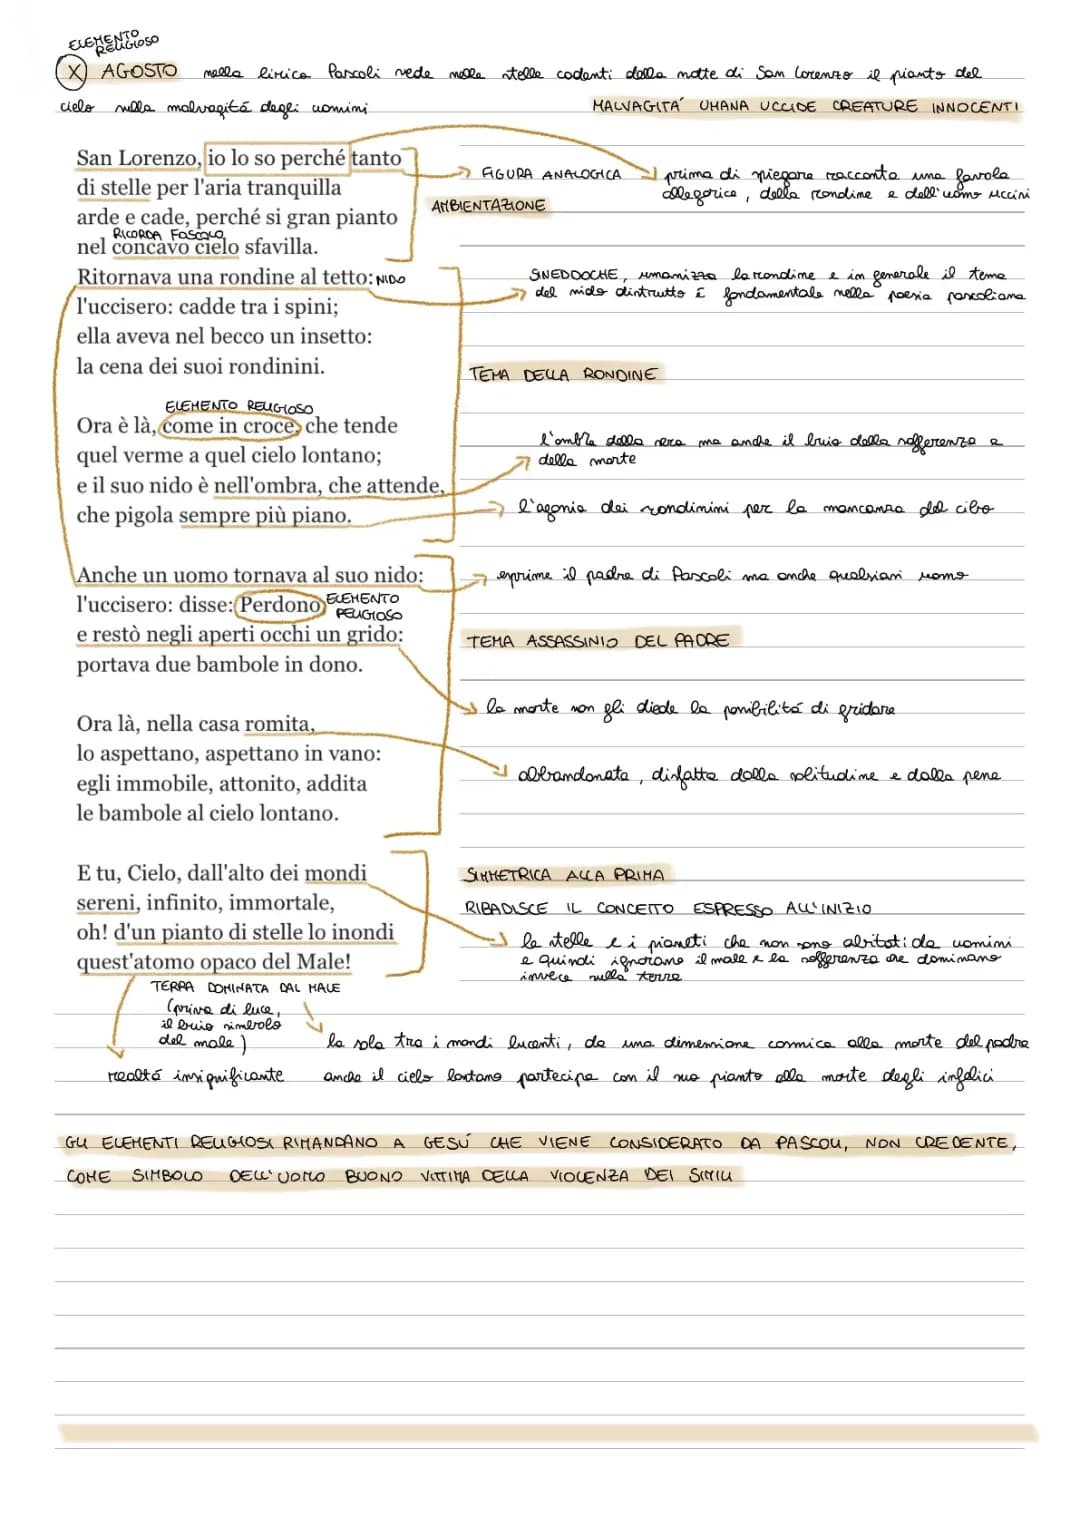 ELEMENTO
RELIGIOSO
X AGOSTO nella lirica Pascoli vede nelle stelle cadenti della notte di San Lorenzo il pianto del
cielo sulla malvagitá degli uomini
MALVAGITA' UMANA UCCIDE CREATURE INNOCENTI
San Lorenzo, io lo so perché tanto
di stelle per l'aria tranquilla
arde e cade, perché si gran pianto
RICORDA FOSCOLO
nel concavo cielo sfavilla.
FIGURA ANALOGICA
prima di spiegare racconta una favola
allegorica, della rondine e dell'uomo uccisi
AMBIENTAZIONE
Ritornava una rondine al tetto: NIDO
l'uccisero: cadde tra i spini;
ella aveva nel becco un insetto:
la cena dei suoi rondinini.
SNEDDOCHE, umanizza la rondine e in generale il tema
del nido distrutto é fondamentale nella poesia pascoliana
TEMA DELLA RONDINE
ELEMENTO RELIGIOSO
Ora è là, come in croce, che tende
quel verme a quel cielo lontano;
e il suo nido è nell'ombra, che attende,
che pigola sempre più piano.
l'ombra della sera ma anche il buio della sofferenza e
della morte
l'agonia dei rondinini per la mancanza del cibo
Anche un uomo tornava al suo nido:
l'uccisero: disse: Perdono
ELEMENTO
RELIGIOSO
e restò negli aperti occhi un grido:
portava due bambole in dono.
esprime il padre di Pascoli ma anche qualsiasi uomo
TEMA ASSASSINIO DEL PADRE
la morte non gli diede la possibilitá di gridare
Ora là, nella casa romita,
lo aspettano, aspettano in vano:
egli immobile, attonito, addita
le bambole al cielo lontano.
abbandonata, disfatta dalla solitudine e dalla pena
E tu, Cielo, dall'alto dei mondi
sereni, infinito, immortale,
oh! d'un pianto di stelle lo inondi
quest'atomo opaco del Male!
SIMMETRICA ALLA PRIMA
RIBADISCE IL CONCETTO ESPRESSO ALL'INIZIO
le stelle e i pianeti che non sono abitati da uomini
e quindi ignorano il male e la sofferenza che dominano
invece sulla terra
TERRA DOMINATA DAL MALE
(priva di luce,
il buio simbolo
del male)
la sola tra i mondi lucenti, da una dimensione cosmica alla morte del padre
realtá insignificante
anche il cielo lontano partecipa con il suo pianto alla morte degli infelici
GLI ELEMENTI RELIGIOSI RIMANDANO A GESÚ CHE VIENE CONSIDERATO DA PASCOLI, NON CREDENTE,
COME SIMBOLO DELL'UOMO BUONO VITTIMA DELLA VIOLENZA DEI SIMILI